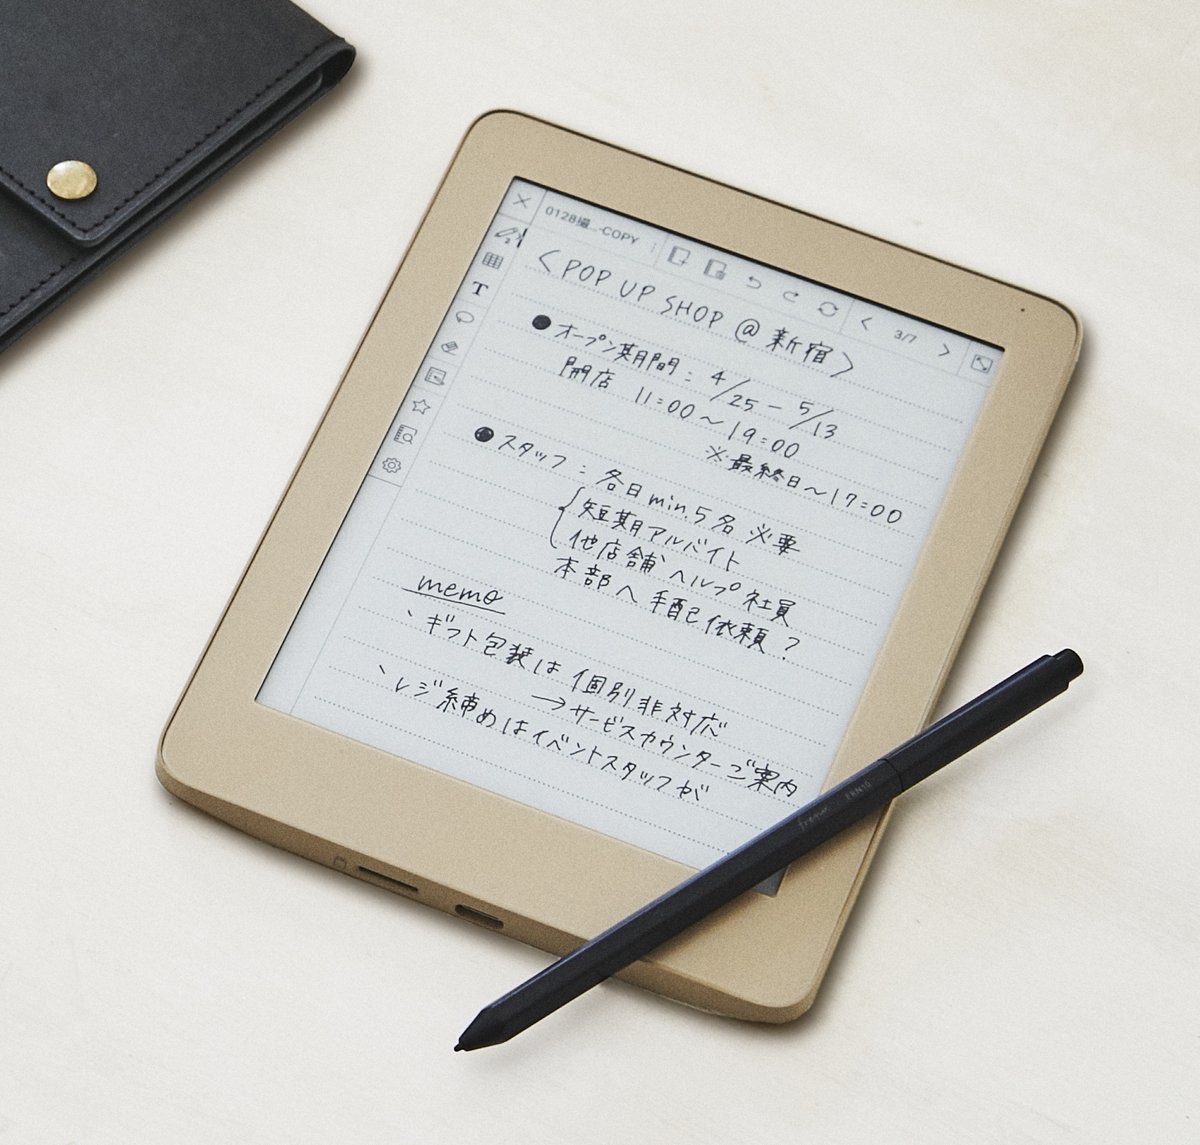 0128撮...-COPY
3/7
T
〈POP UP SHOP @ 新宿〉
●オープン期間：4/25 － 5/13
開店 11:00～19:00
※最終日～17:00
●スタッフ：各日min.5名 ※要
短期アルバイト
他店舗ヘルプ社員
本部へ手配依頼？
memo
、ギフト包装は個別非対応
→サービスカウンターご案内
、レジ締めはイベントスタッフが